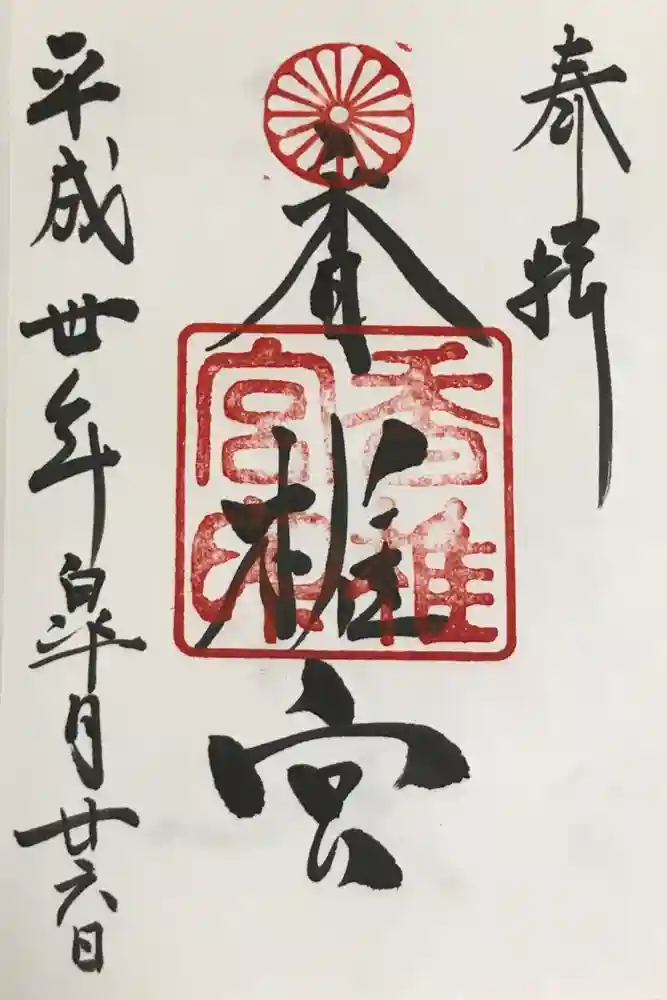 奉拝
香椎宮
香椎
宮印
平成丗年皐月廿六日